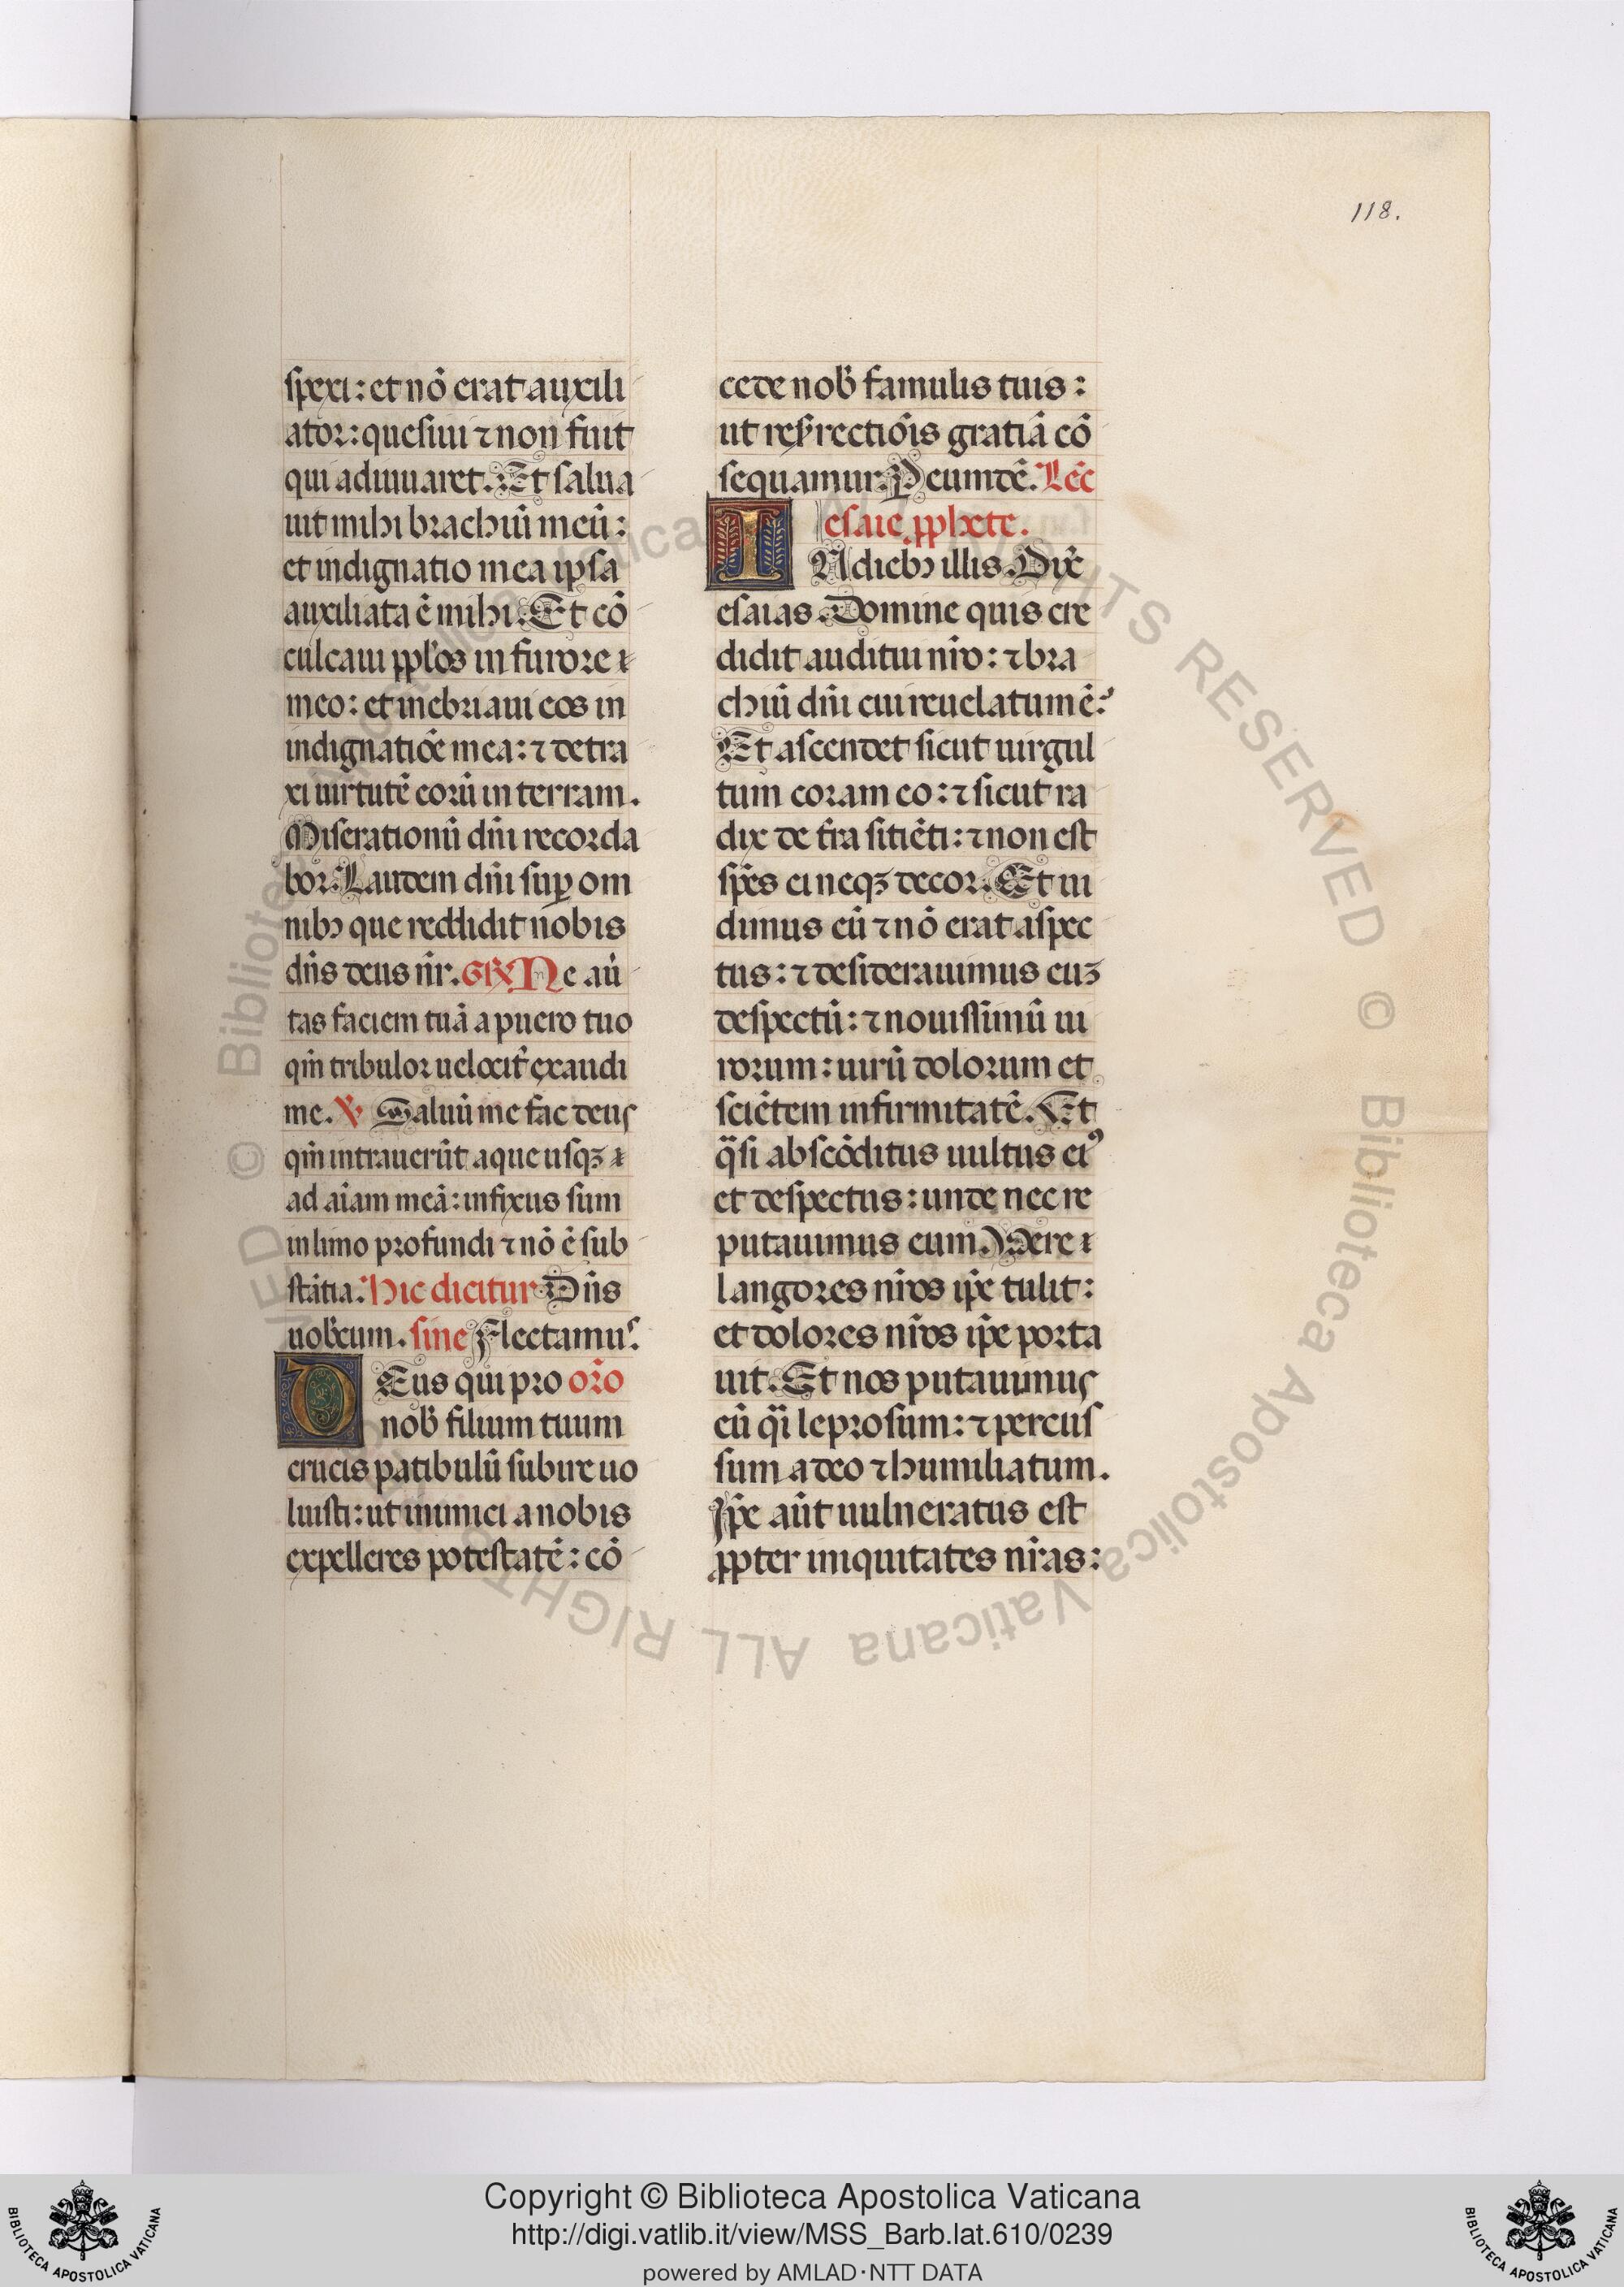 118.
spexi: et nō erat auxili
ator: quesiui ⁊ non fuit
qui adiuuaret. Et salua
uit mihi brachiū meū:
et indignatio mea ipsa
auxiliata ē mihi. Et cō
culcaui pplos in furore
meo: et inebriaui eos in
indignatiōe mea: ⁊ detra
xi uirtutē eorū in terram.
Miserationū dn̄i recorda
bor. Laudem dn̄i suꝑ om
nibꝫ que reddidit nobis
dn̄s deus nr̄. GR̄. Ne au
tas faciem tuā a puero tuo
qm̄ tribulor uelocit̄ exaudi
me. ℣ Saluū me fac deus
qm̄ intrauerūt aque usqꝫ
ad aīam meā: infixus sum
in limo profundi ⁊ nō ē sub
stātia. Hic dicitur Dn̄s
uob̄cum. sine Flectamus.
DEus qui pro or̄o
nob̄ filium tuum
crucis patibulū subire uo
luisti: ut inimici a nobis
expelleres potestatē: cō
cede nob̄ famulis tuis:
ut resrectiōis gratiā cō
sequamur. P eumdē. Lēc
esaie ꝓphete.
IN diebꝫ illis. Dix̄
esaias. Domine quis cre
didit auditui nr̄o: ⁊ bra
chiū dn̄i cui reuelatum ē?
Et ascendet sicut uirgul
tum coram eo: ⁊ sicut ra
dix de tr̄a sitiēti: ⁊ non est
spēs ei neqꝫ decor. Et ui
dimus eū ⁊ nō erat aspec
tus: ⁊ desiderauimus euꝫ
despectū: ⁊ nouissimū ui
rorum: uirū dolorum et
sciētem infirmitatē. Et
q̄si abscōditus uultus eiꝰ
et despectus: unde nec re
putauimus eum. Vere
langores nr̄os ip̄e tulit:
et dolores nr̄os ip̄e porta
uit. Et nos putauimus
eū q̄i leprosum: ⁊ percus
sum a deo ⁊ humiliatum.
Ip̄e aūt uulneratus est
ꝓpter iniquitates nr̄as:
Copyright © Biblioteca Apostolica Vaticana
http://digi.vatlib.it/view/MSS_Barb.lat.610/0239
powered by AMLAD·NTT DATA
BIBLIOTECA APOSTOLICA VATICANA
BIBLIOTECA APOSTOLICA VATICANA
© Biblioteca Apostolica Vaticana ALL RIGHTS RESERVED © Biblioteca Apostolica Vaticana ALL RIGHTS RESERVED